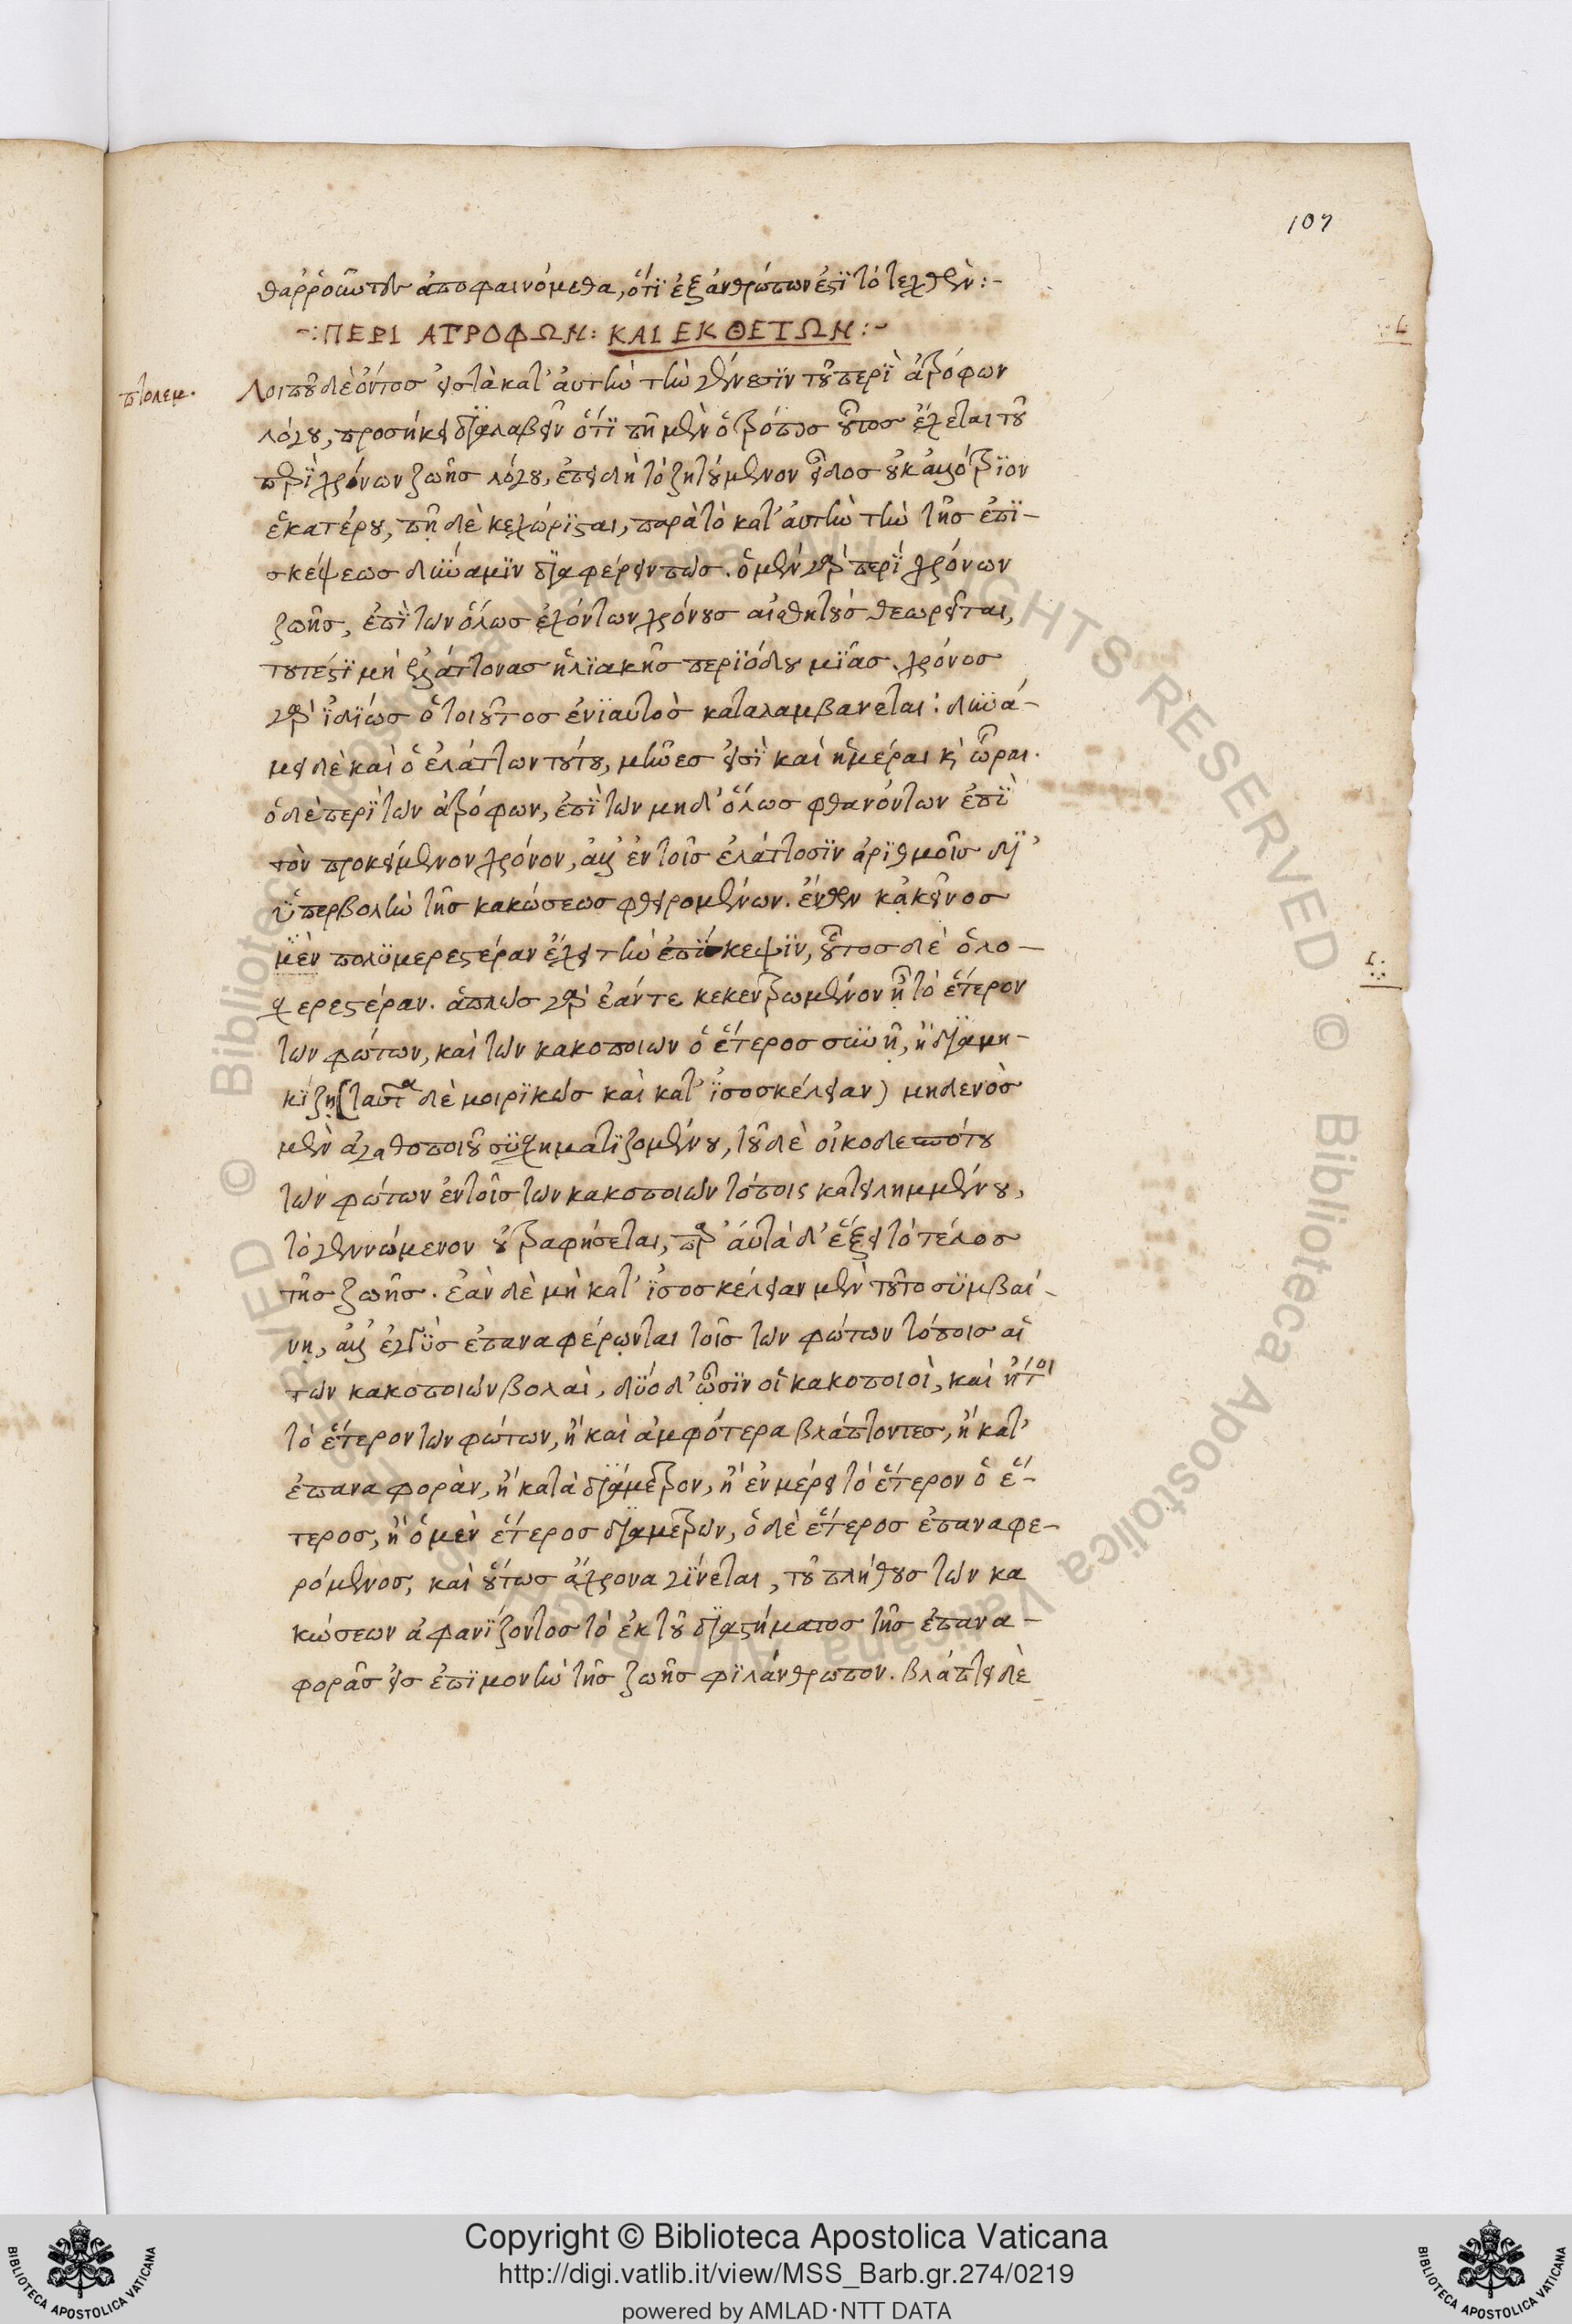 107
θαρροῦντες ἀποφαινόμεθα, ὅτι ἐξ ἀνθρώπων ἐστὶ τὸ τεχθέν :-
-: ΠΕΡΙ ΑΤΡΟΦΩΝ: ΚΑΙ ΕΚΘΕΤΩΝ :-
πτολεμ.
Λοιποῦ δὲ ὄντος εἰς τὰ κατ' αὐτὴν τὴν γένεσιν τοῦ περὶ ἀτρόφων
λόγου, προσήκει διαλαβεῖν ὅτι πῆ μὲν ὁ τρόπος οὗτος ἔχεται τοῦ
περὶ χρόνων ζωῆς λόγου, ἐπειδὴ τὸ ζητούμενον εἶδος οὐκ ἀλλότριον
ἑκατέρου, πῆ δὲ κεχώρισται, παρὰ τὸ κατ' αὐτὴν τὴν τῆς ἐπι-
σκέψεως δύναμιν διαφέρειν πώς. ὁ μὲν γὰρ περὶ χρόνων
ζωῆς, ἐπὶ τῶν ὅλως ἐχόντων χρόνους αἰσθητοὺς θεωρεῖται,
τουτέστι μὴ ἐλάττονας ἡλιακῆς περιόδου μιᾶς. χρόνος
γὰρ ἰδίως ὁ τοιοῦτος ἐνιαυτὸς καταλαμβάνεται: δυνά-
μει δὲ καὶ ὁ ἐλάττων τούτου, μῆνες εἰσὶ καὶ ἡμέραι κ ὧραι.
ὁ δὲ περὶ τῶν ἀτρόφων, ἐπὶ τῶν μηδ' ὅλως φθανόντων ἐπὶ
τὸν προκείμενον χρόνον, ἀλλ' ἐν τοῖς ἐλάττοσιν ἀριθμοῖς δι'
ὑπερβολὴν τῆς κακώσεως φθειρομένων. ἔνθεν κἀκεῖνος
μὲν πολυμερεστέραν ἔχει τὴν ἐπίσκεψιν, οὗτος δὲ ὁλο-
σχερεστέραν. ἁπλῶς γὰρ ἐάν τε κεκεντρωμένον ᾖ τὸ ἕτερον
τῶν φώτων, καὶ τῶν κακοποιῶν ὁ ἕτερος συνῇ, ἢ διαμη-
κίζῃ (ταῦτα δὲ μοιρικῶς καὶ κατ' ἰσοσκέλειαν) μηδενὸς
μὲν ἀγαθοποιοῦ συσχηματιζομένου, τοῦ δὲ οἰκοδεσπότου
τῶν φώτων ἐν τοῖς τῶν κακοποιῶν τόποις κατειλημμένου,
τὸ γεννώμενον οὐ τραφήσεται, παρ' αὐτὰ δ' ἕξει τὸ τέλος
τῆς ζωῆς. ἐὰν δὲ μὴ κατ' ἰσοσκέλειαν μὲν τοῦτο συμβαί-
νῃ, ἀλλ' ἐγγὺς ἐπαναφέρωνται τοῖς τῶν φώτων τόποις αἱ
τῶν κακοποιῶν βολαί, δύο δ' ὦσιν οἱ κακοποιοὶ, καὶ ἤτοι
τὸ ἕτερον τῶν φώτων, ἢ καὶ ἀμφότερα βλάπτοντες, ἢ κατ'
ἐπαναφορὰν, ἢ κατὰ διάμετρον, ἢ ἐν μέρει τὸ ἕτερον ὁ ἕ-
τερος, ἢ ὁ μὲν ἕτερος διαμετρῶν, ὁ δὲ ἕτερος ἐπαναφε-
ρόμενος, καὶ οὕτως ἄχρονα γίνεται, τοῦ πλήθους τῶν κα
κώσεων ἀφανίζοντος τὸ ἐκ τοῦ διαστήματος τῆς ἐπανα-
φορᾶς εἰς ἐπιμονὴν τῆς ζωῆς φιλάνθρωπον. βλάπτει δὲ
Copyright © Biblioteca Apostolica Vaticana
http://digi.vatlib.it/view/MSS_Barb.gr.274/0219
powered by AMLAD·NTT DATA